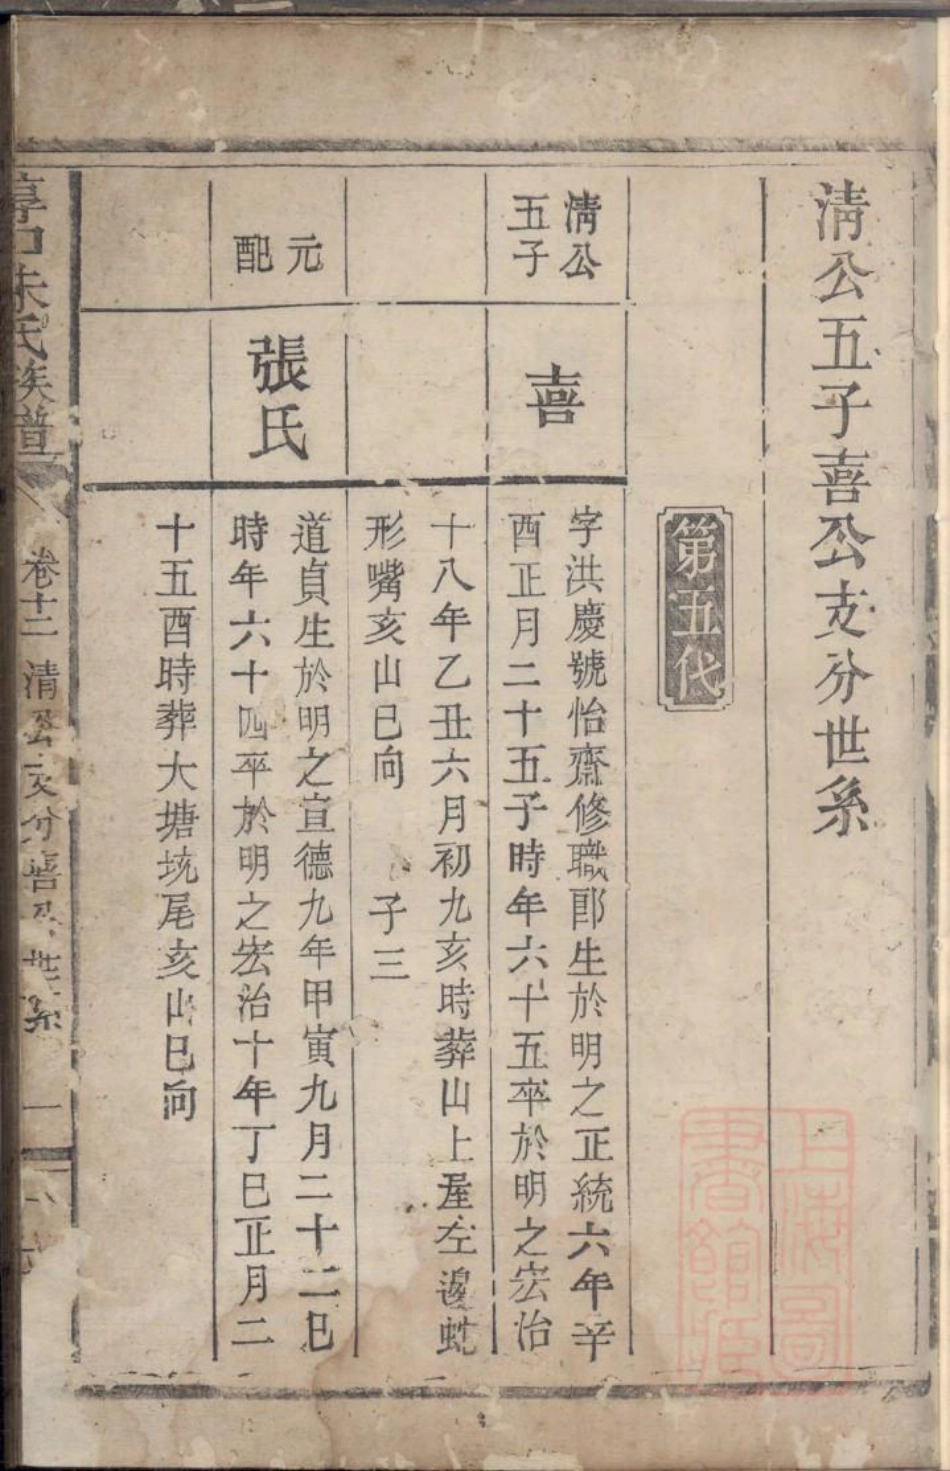 清公五子喜公支分世系
第五代
清公
五子
喜
字洪慶號怡齋修職郎生於明之正統六年辛
酉正月二十五子時年六十五卒於明之宏治
十八年乙丑六月初九亥時葬山上屋左邊虵
形嘴亥山巳向 子三
元
配
張氏
道貞生於明之宣德九年甲寅九月二十二巳
時年六十四卒於明之宏治十年丁巳正月二
十五酉時葬大塘垅尾亥山巳向
朱氏族譜
卷十二 清公支分喜公世系 一
上海圖
書館